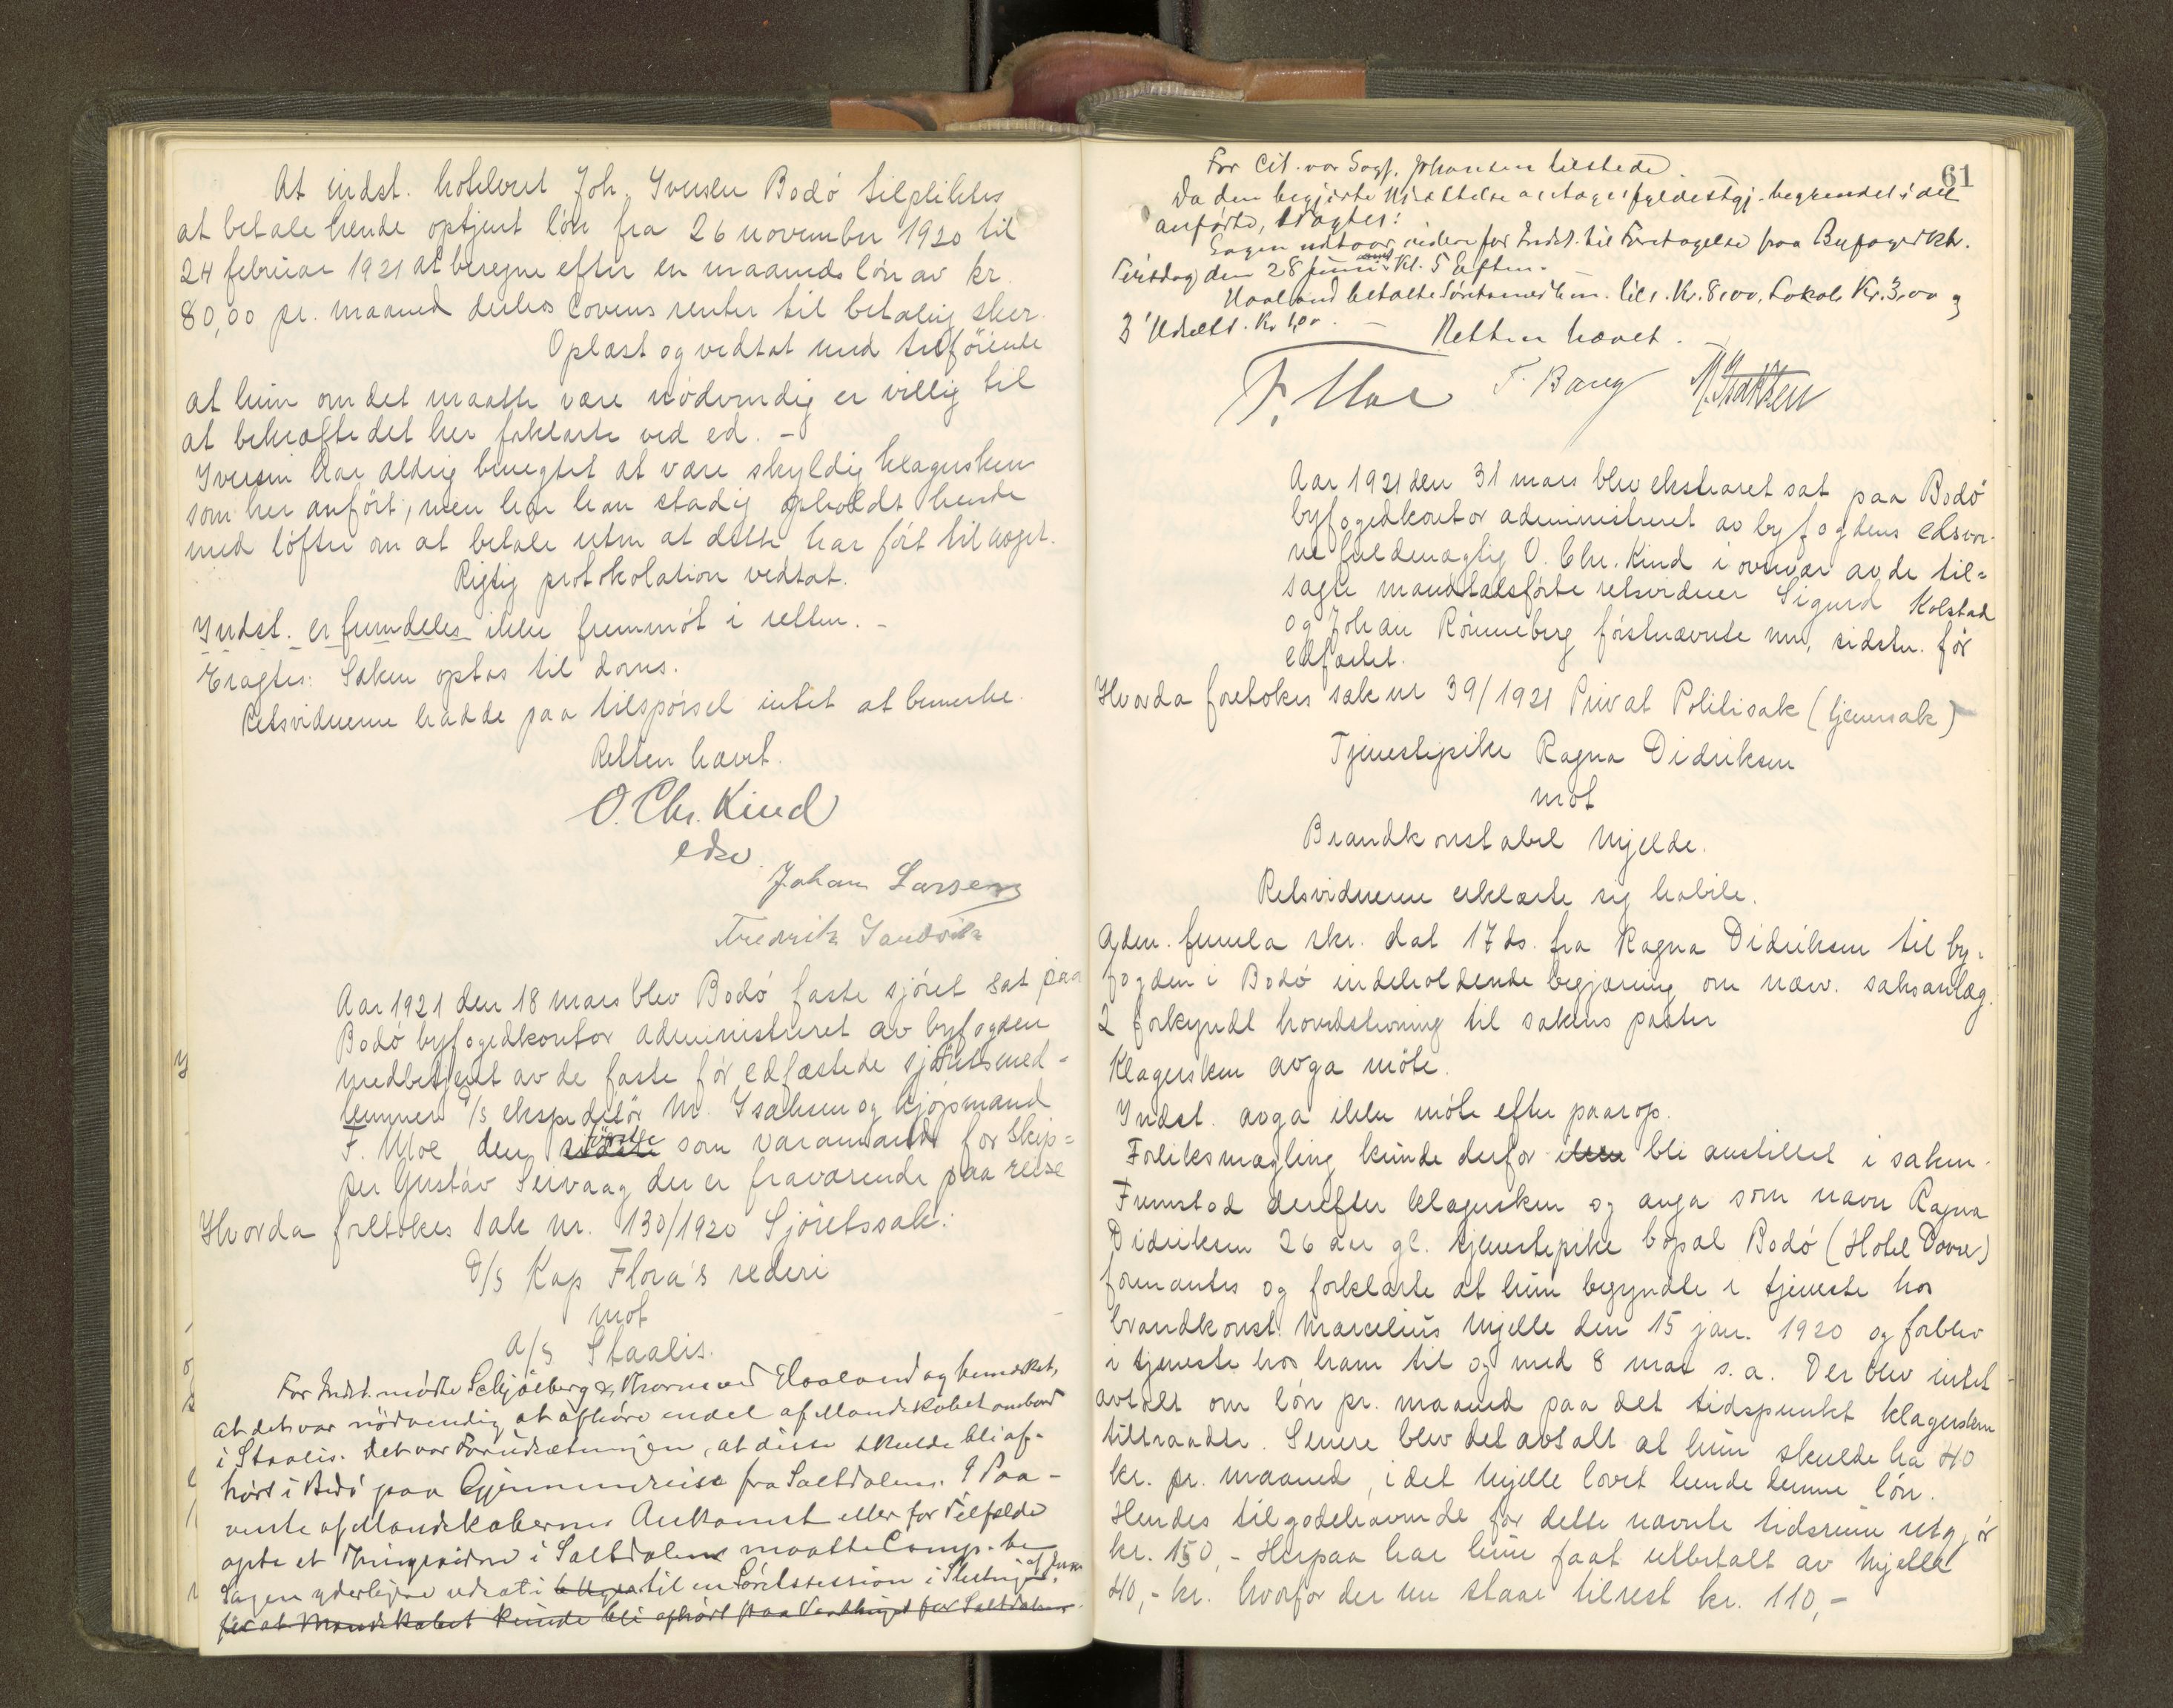 At indst. hotelvert Joh. Iversen Bodö tilpliktes
at betale hende optjent lön fra 26 november 1920 til
24 februar 1921 at beregne efter en maaneds lön av kr.
80,00 pr. maaned derhos lovens renter til betaling sker.
Oplæst og vedtat med tilföiende
at hun om det maatte være nödvendig er villig til
at bekræfte det her forklarte ved ed. -
Iversen har aldrig benegtet at være skyldig klagersken
som her anfört; men har han stadig opholdt hende
med löfter om at betale uten at dette har fört til noget.
Rigtig protokolation vedtat.
Indst. er fremdeles ikke fremmöt i retten. -
Eragtes: Saken optas til doms.
Retsvidnerne hadde paa tilspörsel intet at bemerke.
Retten hævet.
O. Chr. Kind
edsv.
Johan Larsen
Fredrik Sandvik
Aar 1921 den 18 mars blev Bodö faste sjöret sat paa
Bodö byfogedkontor administreret av byfogden
medbetjent av de faste för edfæstede sjöretsmed-
lemmer d/s ekspeditör M. Isaksen og kjöpmand
F. Moe den förste som varamand for skip-
per Gustav Seivaag der er fraværende paa reise
Hvorda foretokes sak nr. 130/1920 Sjöretssak:
D/S Kap Flora's rederi
mot
A/S Staalis.
For Indst. mödte Schjölberg & Thorne ved Haaland og bemerket,
at det var nödvendig at afhöre endel af Mandskabet ombord
i Staalis. Det var Forudsætningen, at disse skulde bli af-
hört i Bodö paa Gjennemreise fra Saltdalen. I Paa-
vente af Mandskabernes Ankomst eller for Tilfælde
opta et Thingsvidne i Saltdalen maatte Comp. be
Sagen yderligere udsat i til en Söretssession i Slutningen af Juni
for at Mandskabet kunde bli afhört paa Vaarthinget for Saltdalen.
61
For Cit. var Sagf. Johansen tilstede.
Da den begjærte Udsættelse antages fyldestgj. begrundet i det
anförte, eragtes:
Sagen udstaar videre for Indst. til Foretagelse paa Byfogedktr.
Tirsdag den 28 Juni Kl. 5 Eften.
Haaland betalte Söretsmedlem. tils. Kr. 8,00, Lokale Kr. 3,00 og
3' Udsætt. Kr 1,00. - Retten hævet.
F. Moe T. Bang M. Isaksen
Aar 1921 den 31 mars blev ekstraret sat paa Bodö
byfogedkontor administreret av byfogdens edsvor-
ne fuldmægtig O. Chr. Kind i overvær av de til=
sagte mandtalsförte retsvidner Sigurd Kolstad
og Johan Rönneberg förstnævnte nu, sidstn. för
edfæstet.
Hvorda foretokes sak nr 39/1921 Privat Politisak (tjenersak)
Tjenestepike Ragna Didriksen
mot
Brandkonstabel Mjelde.
Retsvidnerne erklærte sig habile.
Adm. fremla skr. dat 17 ds. fra Ragna Didriksen til by-
fogden i Bodö indeholdende begjæring om nærv. saksanlæg.
2 forkyndt hovedstevning til sakens parter
Klagersken avga möte.
Indst. avga ikke möte efter paarop.
Forliksmægling kunde derfor ikke bli anstillet i saken.
Fremstod derefter klagersken og avga som navn Ragna
Didriksen 26 aar gl. tjenestepike bopæl Bodö (Hotel Dovre)
formantes og forklarte at hun begyndte i tjeneste hos
brandkonst. Marcelius Mjelle den 15 jan. 1920 og forblev
i tjeneste hos ham til og med 8 mai s.a. Der blev intet
avtalt om lön pr. maaned paa det tidspunkt klagersken
tiltraadte. Senere blev det avtalt at hun skulde ha 40
kr. pr. maaned, i det Mjelle lovet hende denne lön.
Hendes tilgodehavende for dette nævnte tidsrum utgjör
kr. 150,- Herpaa har hun faat utbetalt av Mjelle
40,- kr. hvorfor der nu staar tilrest kr. 110,-